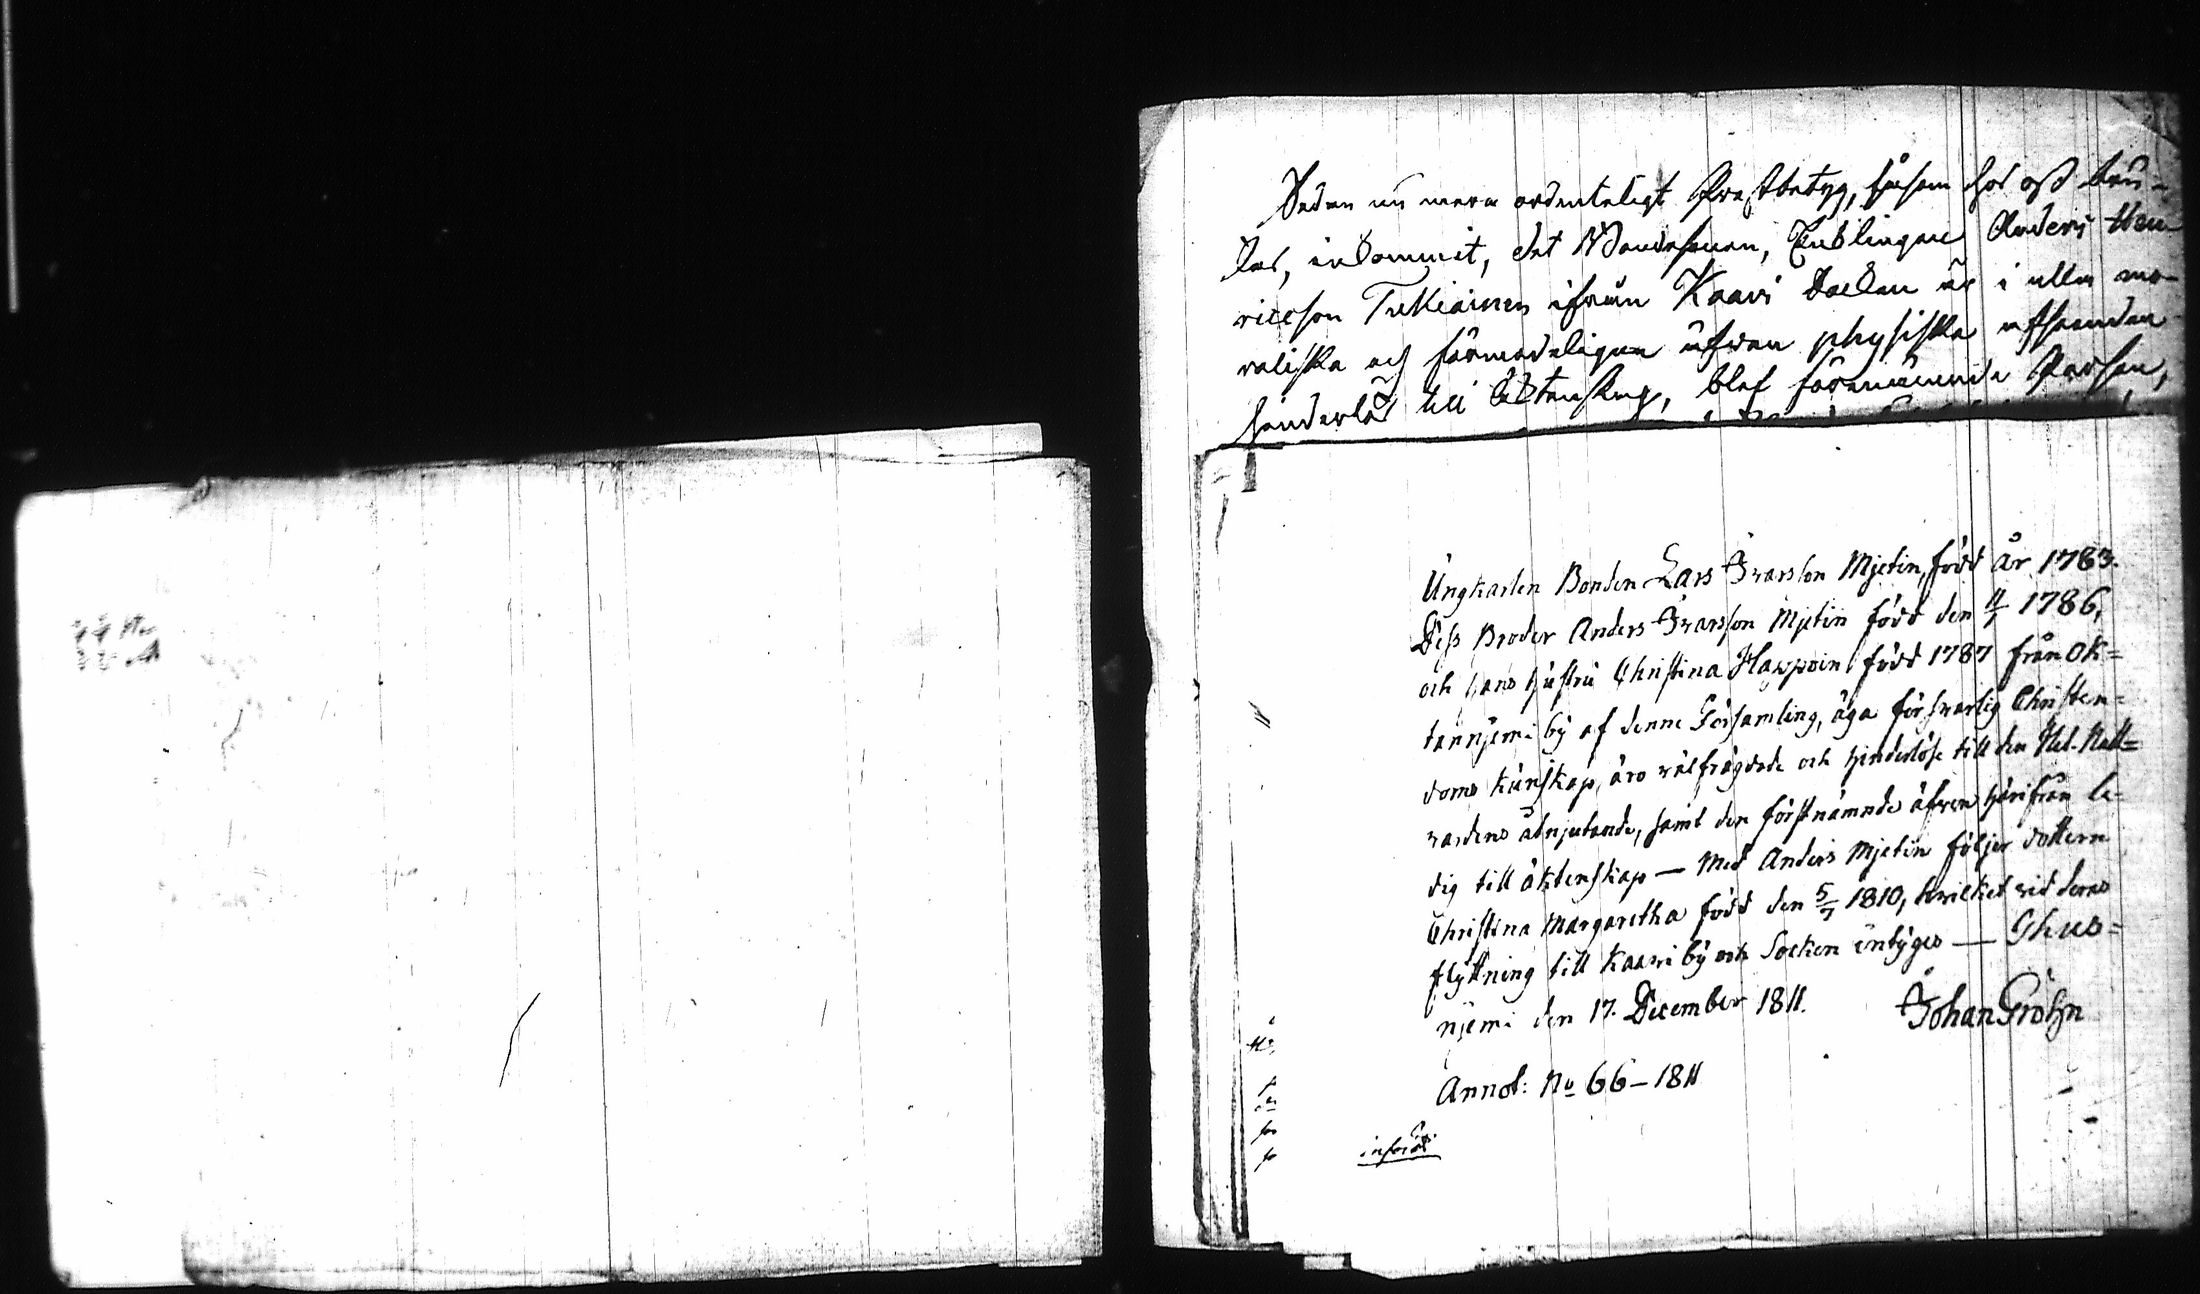 Sedan nu mera ordenteligt Prestbetyg, såsom hos oss bru-
kas, inkommit, det Mandspersonen, Enklingen Anders Hen-
ricsson Tukiainen ifrån Kaavi Socken är i alla mo-
raliska och förmodeligen äfven physiska afseenden
hinderlös till Äktenskap, blef förenämnde Person,
Ungkarlen Bonden Lars Ivarsson Mjetin, född år 1783.
Dess Broder Anders Ivarsson Mjetin född den 11/7 1786,
och hans hustru Christina Hapwoin född 1787 från Ok=
tannjemi by af denne Församling, äga försvarlig Christen=
doms kunskap, äro välfrägdade och hinderlöse till den Hel. Natt=
vardens åtnjutande, samt den förstnämnde äfven härifrån le-
dig till äktenskap — Med Anders Mjetin följer dottern
Christina Margaretha född den 5/7 1810, hvilket vid deras
flyttning till Kaavi by och Socken intygas — Ihus=
njemi den 17. December 1811. Johan Gröhn
Annot: No 66 – 1811
införd